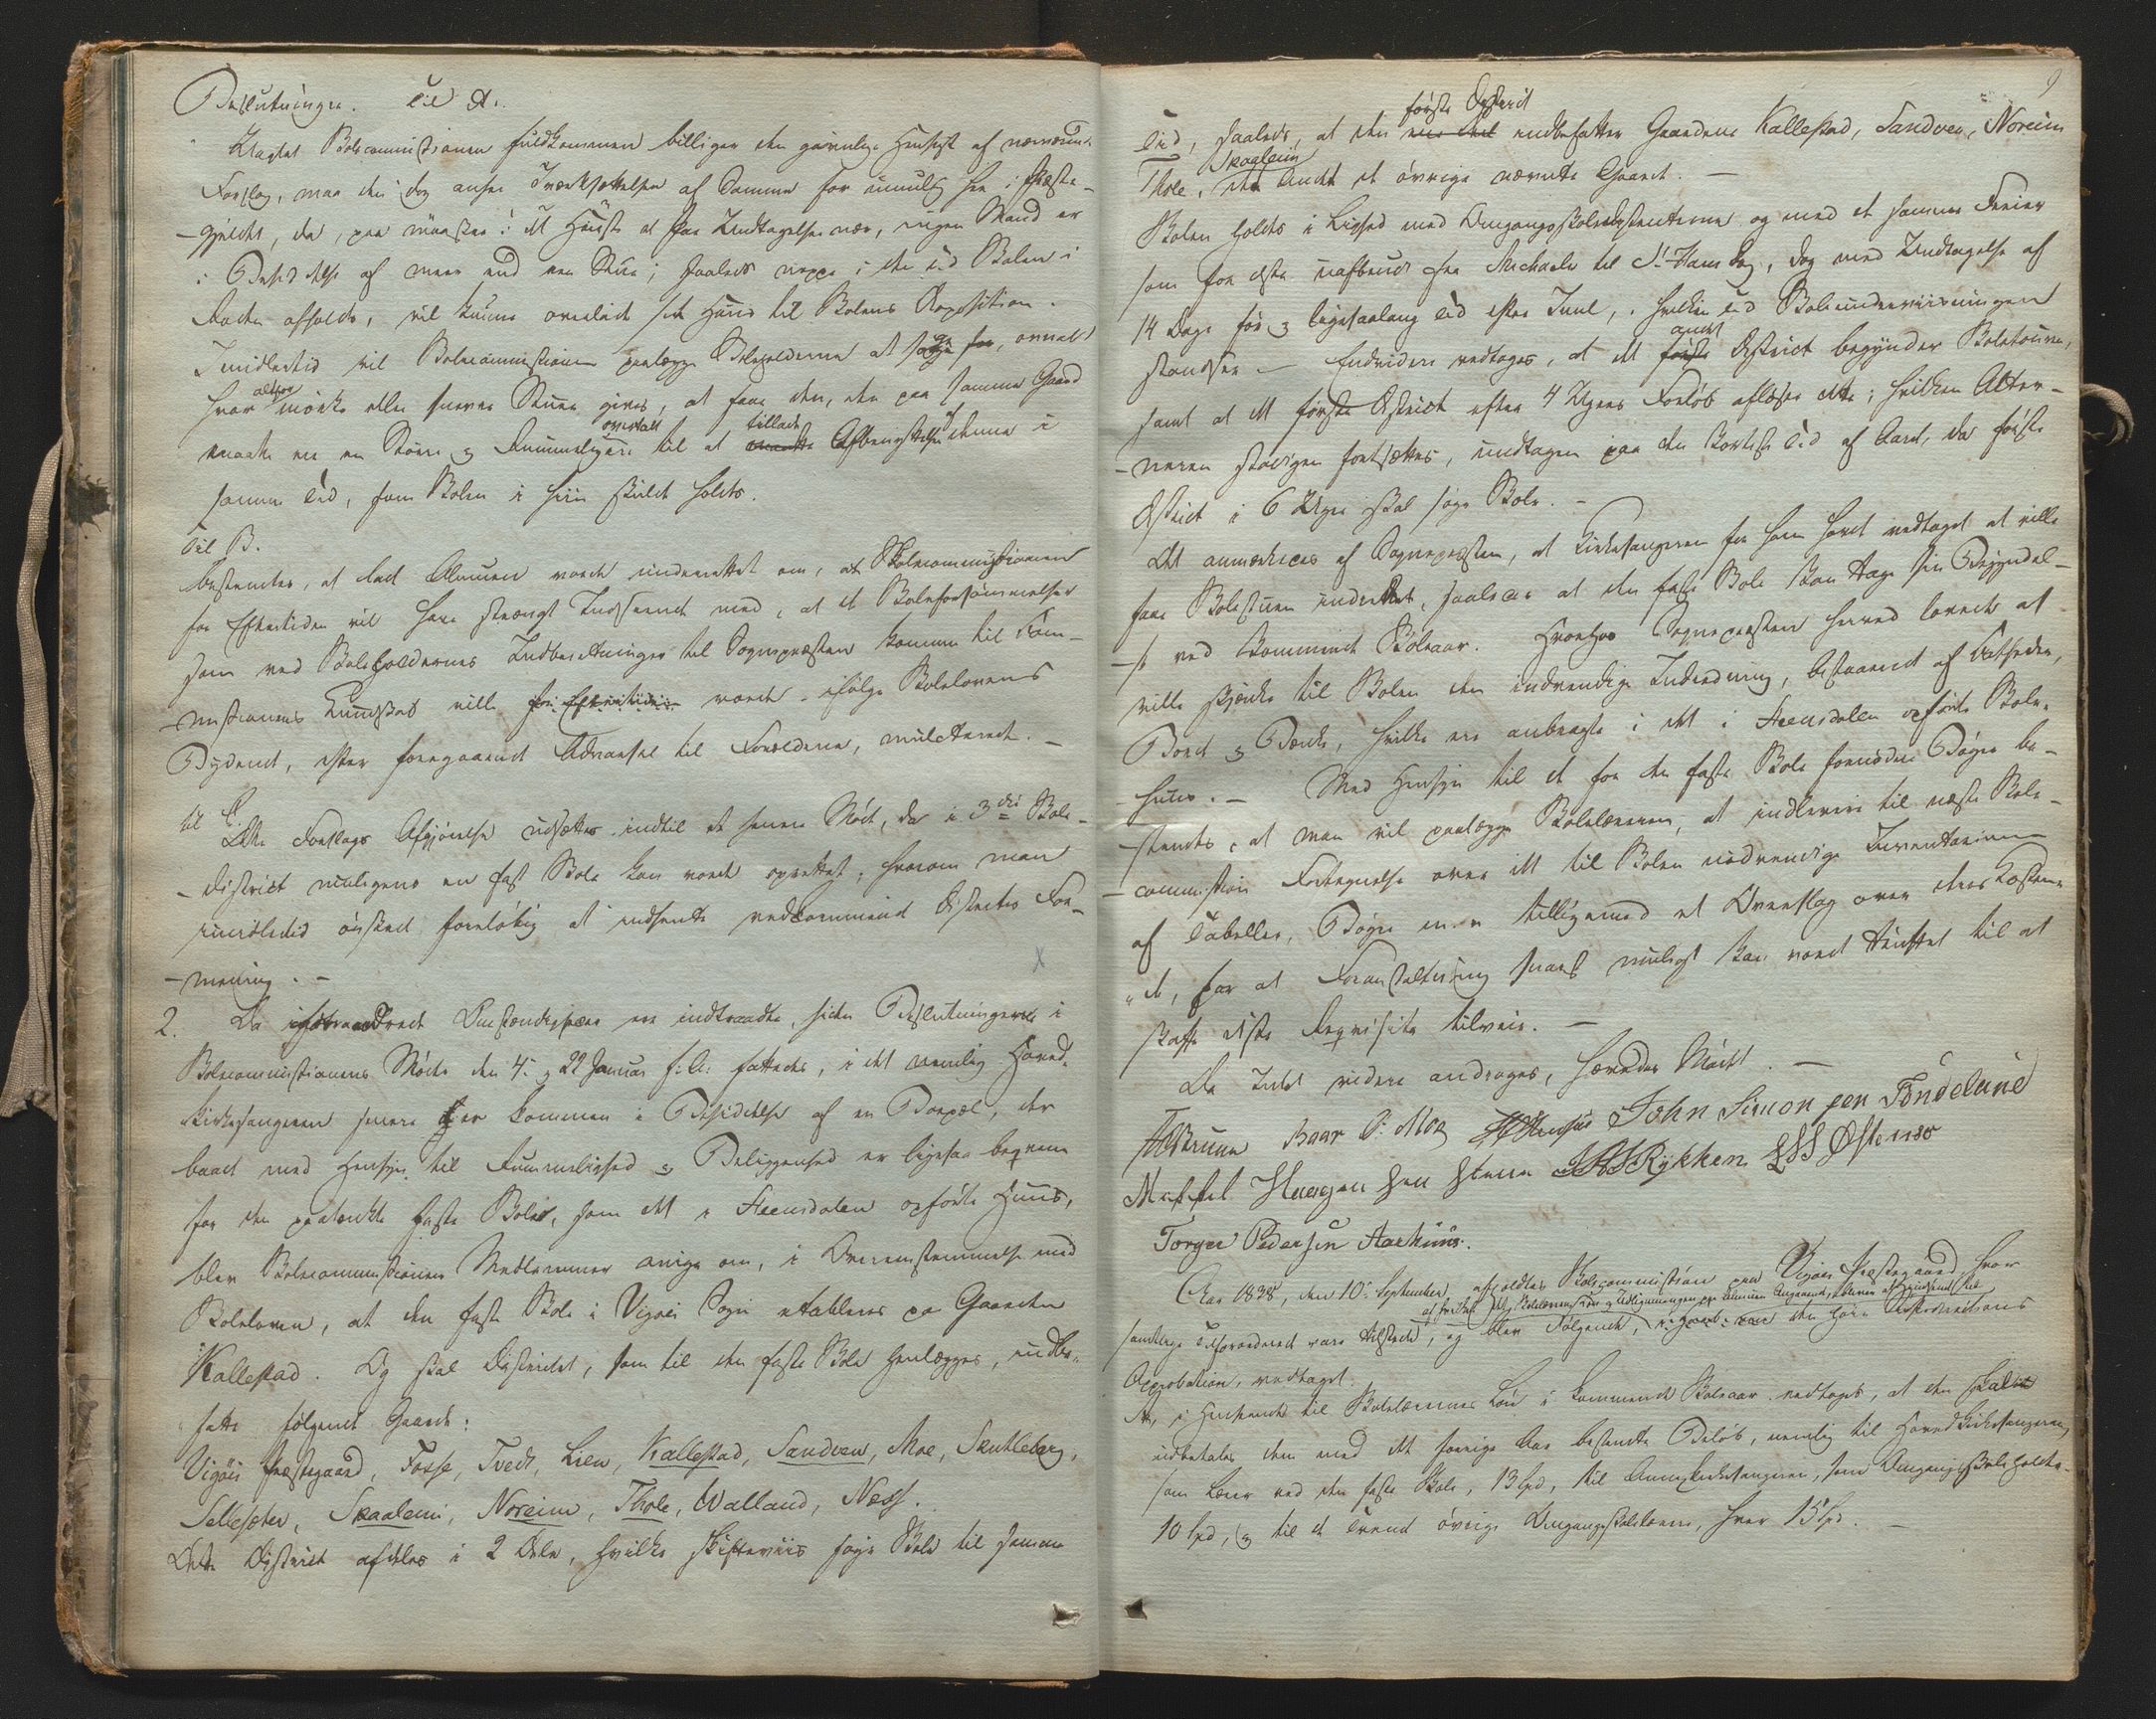 Beslutninger. Til A.
Uagtet Skolecommissionen fuldkommen billiger den gavnlige Hensigt af nærværende
Forslag, maa den dog ansee Iværksættelsen af Samme for umulig her i Præste-
-gjeldet, da, paa maaskee i det Høieste et Par Undtagelser nær, ingen Mand er
i Besiddelse af meer end een Stue; saaledes neppe i den Tid Skolen i
Roden afholdes, vil kunne overlade sit Huus til Skolens Disposition.
Imidlertid vil Skolecommissionen paalægge Skoleholderne at sørge for, overalt
hvor altfor mørke eller snevre Stuer gives, at faae den, der paa samme Gaard
maatte en Større og Rummeligere til at tillade Afbenyttelsen af denne i
samme Tid, som Skolen i hiin skulde holdes.
Til B.
bestemtes, at lade Almuen vorde underrettet om, at Skolecommissionen
for Eftertiden vil have strængt Indseende med, at de Skoleforsømmelser
som ved Skoleholdernes Indberetninger til Sognepræsten komme til Com-
-missionens Kundskab ville for Eftertiden vorde ifølge Skolelovens
Bydende, efter foregaaende Advarsel til Forældrene, mulcterede. _
til C.
Dette Forslags Afgjørelse udsættes indtil et senere Møde, da i 3die Skole-
-district muligens en fast Skole kan vorde oprettet; hvorom man
imidlertid ønsked foreløbig at indhente vedkommende Districts For-
-mening. -
2. Da forandrede Omstændigheder ere indtraadte, siden Beslutningerne i
Skolecommissionens Møde den 4. og 22 Januar f: A: fattedes, i det nemlig Hoved-
kirkesangeren senere er kommen i Besiddelse af en Boepæl, der
baade med Hensyn til Rummelighed og Beliggenhed er ligesaa beqvem
for den paatænkte faste Skole, som det i Steensdalen opførte Huus,
blev Skolecommissionens Medlemmer enige om, i Overeensstemmelse med
Skoleloven, at den faste Skole i Vigøer Sogn etableres paa Gaarden
Kallestad. Og skal Districtet, som til den faste Skole henlægges, indbe-
fatte følgende Gaarde:
Vigøer Præstegaard, Fosse, Tvedt, Lien, Kallestad, Sandven, Moe, Skutleberg,
Sellesæter, Skaaleim, Noreim, Thole, Walland, Næss.
Dette District afdeles i 2 Dele, hvilke skifteviis søge Skole til samme
9
Tid, saaledes, at den første District indbefatter Gaardene Kallestad, Sandven, Noreim
Thole, Skaaleim det Andet de øvrige nævnte Gaarde. _
Skolen holdes i Lighed med Omgangsskoledistricterne og med de samme Ferier
som for disse uafbrudt fra Michaeli til St Hans Dag, dog med Undtagelse af
14 Dage før og ligesaalang Tid efter Juul, i hvilken Tid Skoleunderviisningen
standser. _ Endvidere vedtages, at det andet District begynder Skoletouren,
samt at det første District efter 4 Ugers Forløb afløser dette; hvilken Alter-
-neren stadigen fortsættes, undtagen paa den korteste Tid af Aaret, da første
District i 6 Uger skal søge Skole. -
Det anmærkes af Sognepræsten, at Kirkesangeren for ham havde vedtaget at ville
faae Skolestuen indrettet, saaledes at den faste Skole kan tage sin Begyndel-
-se ved kommende Skoleaar. Hvorhos Sognepræsten herved lovede at
ville skjænke til Skolen den indvendige Indredning, bestaaende af Catheder,
Bord og Bænke, hvilke ere anbragte i det i Steensdalen opførte Skole-
-huus. _ Med Hensyn til de for den faste Skole fornødne Bøger be-
-stemtes, at man vil paalægge Skolelæreren, at indlevere til næste Skole-
-commission Fortegnelse over det til Skolen nødvendige Inventarium
af Tabeller, Bøger m.v. tilligemed et Overslag over deres Kostende
", for at Foranstaltning snarest muligst kan vorde truffet til at
skaffe disse Reqvisiter tilveie. _
Da Intet videre androges, hævedes Mødet. _
Baar O: Moe John Simon sen Tøndeland
Haagen sen Steene Rykken Østensø
Torger Pedersen Aarhuus.
Aar 1838, den 10de September, afholdtes Skolecommission paa Vigøer Præstegaard, hvor
samtlige Tilforordnede vare tilstede, og blev Følgende, den høie Directions
Approbation, vedtaget.
A, i Henseende til Skolelærernes Løn i kommende Skoleaar vedtoges, at den skulde
udbetales dem med det forrige Aar bestemte Beløb, nemlig til Hovedkirkesangeren,
som Lærer ved den faste Skole, 13 Spd, til Annexkirkesangeren, som Omgangsskoleholder
10 Spd, og til de Trende øvrige Omgangsskolelærere, hver 15 Spd. _